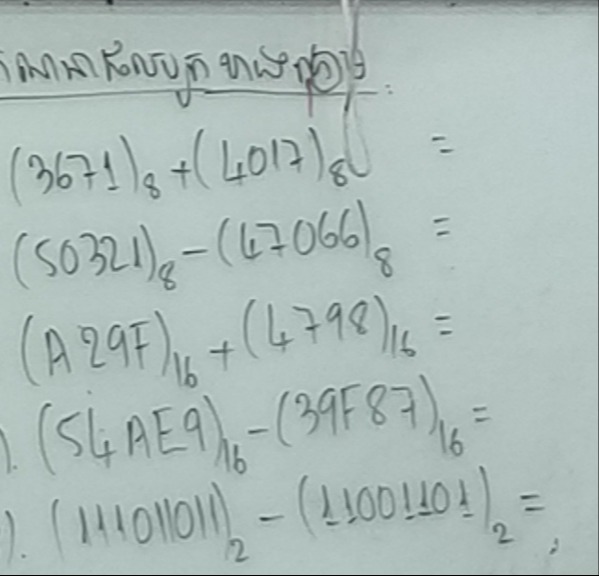 (3671)₈ + (4017)₈ =
(50321)₈ - (47066)₈ =
(A29F)₁₆ + (4798)₁₆ =
). (54AE9)₁₆ - (39F87)₁₆ =
). (111011011)₂ - (11001101)₂ = ,